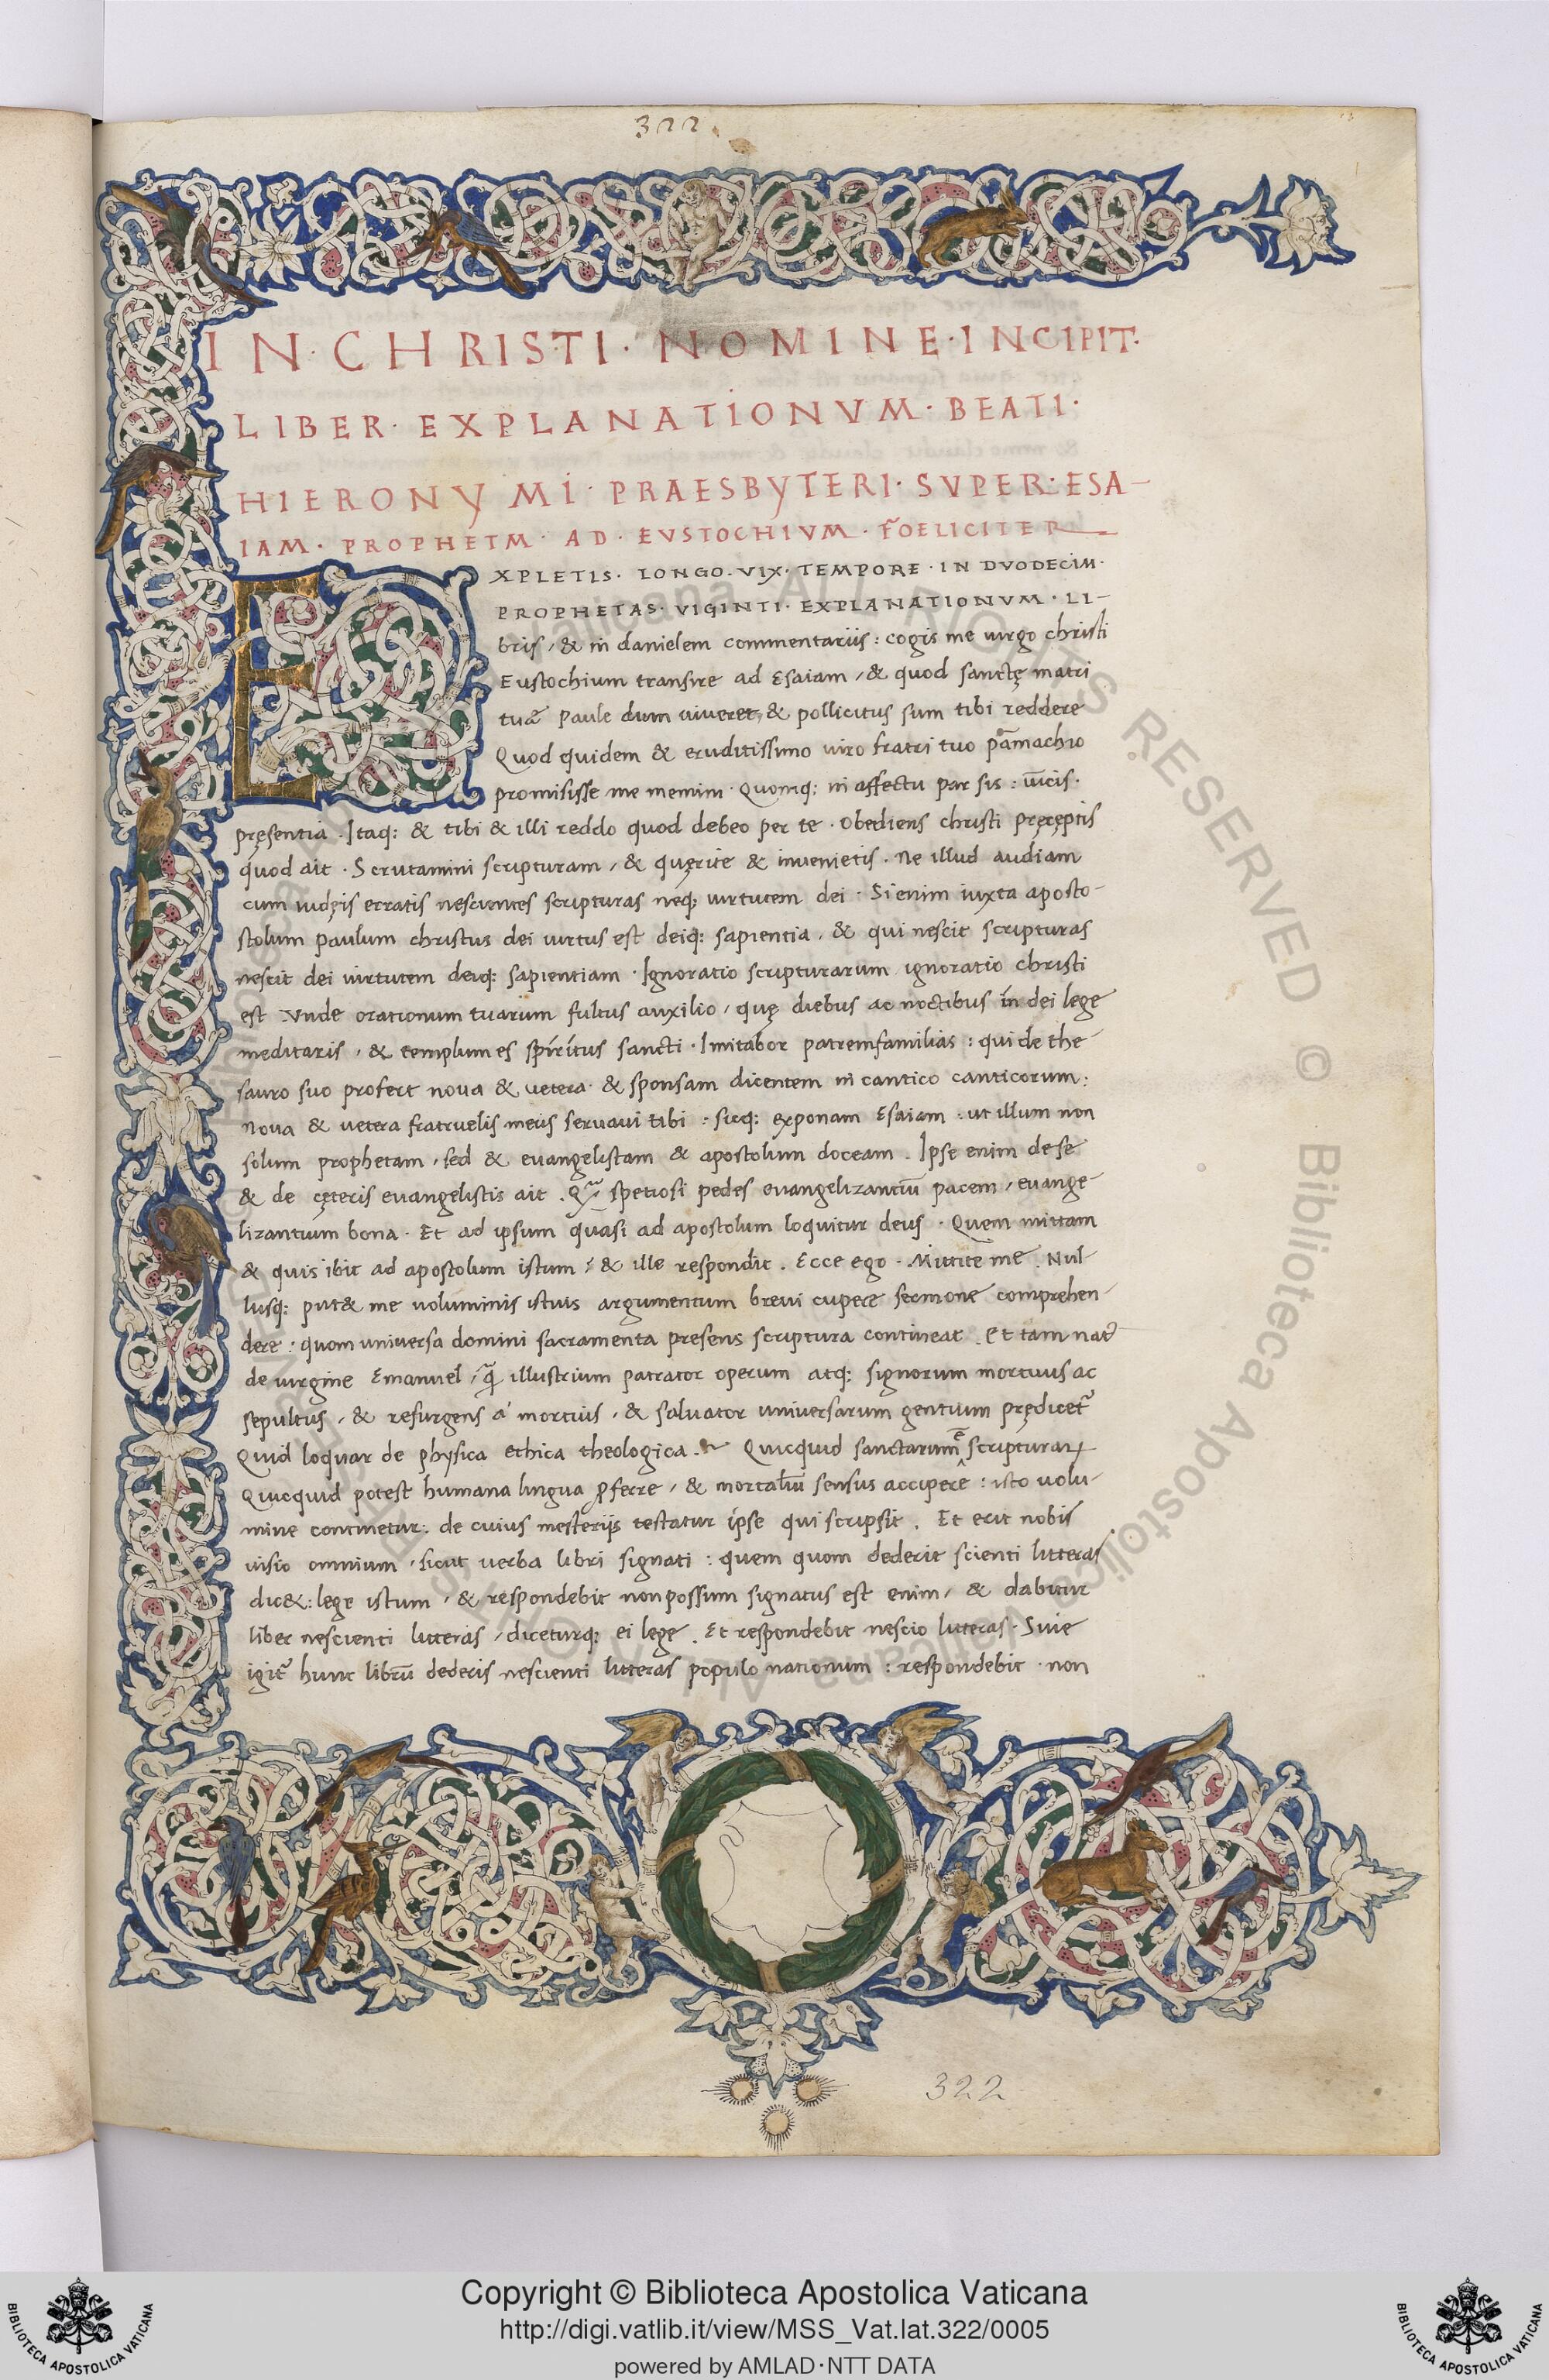 322
IN·CHRISTI·NOMINE·INCIPIT·
LIBER·EXPLANATIONVM·BEATI·
HIERONYMI·PRAESBYTERI·SVPER·ESA-
IAM·PROPHETM·AD·EVSTOCHIVM·FOELICITER
EXPLETIS·LONGO·VIX·TEMPORE·IN DVODECIM·
PROPHETAS·VIGINTI·EXPLANATIONVM·LI-
bris, & in danielem commentariis: cogis me uirgo christi
Eustochium transire ad Esaiam, & quod sanctę matri
tuę Paule dum uiueret, & pollicitus sum tibi reddere
Quod quidem & eruditissimo uiro fratri tuo pāmachio
promisisse me memini. Quomq; in affectu par sis:
pręsentia. Itaq: & tibi & illi reddo quod debeo per te. Obediens christi pręceptis
quod ait. Scrutamini scripturam, & quęrite & inuenietis. Ne illud audiam
cum iudęis erratis nescientes scripturas neq; uirtutem dei. Si enim iuxta aposto-
stolum Paulum christus dei uirtus est deiq: sapientia, & qui nescit scripturas
nescit dei uirtutem deiq: sapientiam. Ignoratio scripturarum ignoratio christi
est Vnde orationum tuarum fultus auxilio, quę diebus ac noctibus in dei lege
meditaris, & templum es spiritus sancti. Imitabor patremfamilias: qui de the
sauro suo profert noua & uetera. & sponsam dicentem in cantico canticorum:
Noua & uetera fratruelis meus seruaui tibi: sicq: exponam Esaiam: ut illum non
solum prophetam, sed & euangelistam & apostolum doceam. Ipse enim de se
& de cęteris euangelistis ait. Q̄ spetiosi pedes euangelizantiū pacem, euange
lizantium bona. Et ad ipsum quasi ad apostolum loquitur deus. Quem mittam
& quis ibit ad apostolum istum? & ille respondit. Ecce ego. Mittite me. Nul
lusq: put& me uoluminis istius argumentum breui cupere sermone comprehen
dere: quom uniuersa domini sacramenta presens scriptura contineat. Et tam nat᷑
de uirgine Emanuel, q̄ illustrium patrator operum atq: signorum mortuus ac
sepultus, & resurgens a' mortuis, & saluator uniuersarum gentium prędicet᷑
Quid loquar de physica ethica theologica. Quicquid sanctarum ē scripturaꝝ
Quicquid potest humana lingua ꝓferre, & mortaliū sensus accipere: isto uolu-
mine continetur: de cuius mesteriis testatur ipse qui scripsit. Et erit nobis
uisio omnium, sicut uerba libri signati: quem quom dederit scienti litteras
dic&: lege istum, & respondebit non possum signatus est enim, & dabitur
liber nescienti litteras, diceturq: ei lege. Et respondebit nescio litteras. Siue
igit᷑ hunc librū dederis nescienti litteras populo nationum: respondebit. non
322
RESERVED © Biblioteca Apostolica Vaticana
Copyright © Biblioteca Apostolica Vaticana
http://digi.vatlib.it/view/MSS_Vat.lat.322/0005
powered by AMLAD·NTT DATA
BIBLIOTECA APOSTOLICA VATICANA
BIBLIOTECA APOSTOLICA VATICANA